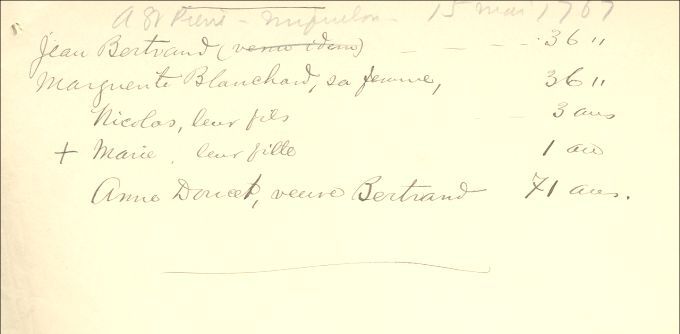 A St Pierre - Miquelon - 15 mai 1767
Jean Bertrand (veuve idem) - - - - 36 "
Marguerite Blanchard, sa femme, 36 "
Nicolas, leur fils - - 3 ans
+ Marie, leur fille 1 an
Anne Doucet, veuve Bertrand 71 ans.